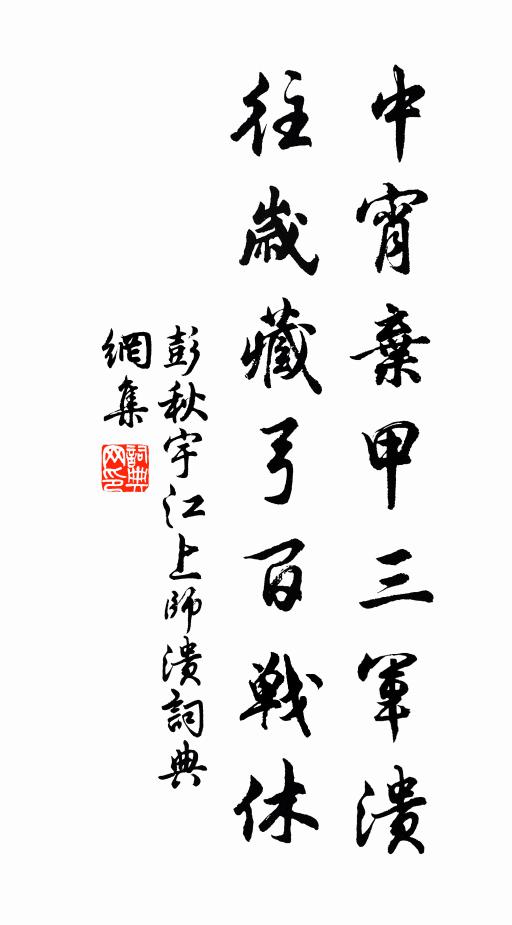 中宵棄甲三軍潰
往歲藏弓百戰休
彭秋宇江上師潰詞典
網集
詞典
网印